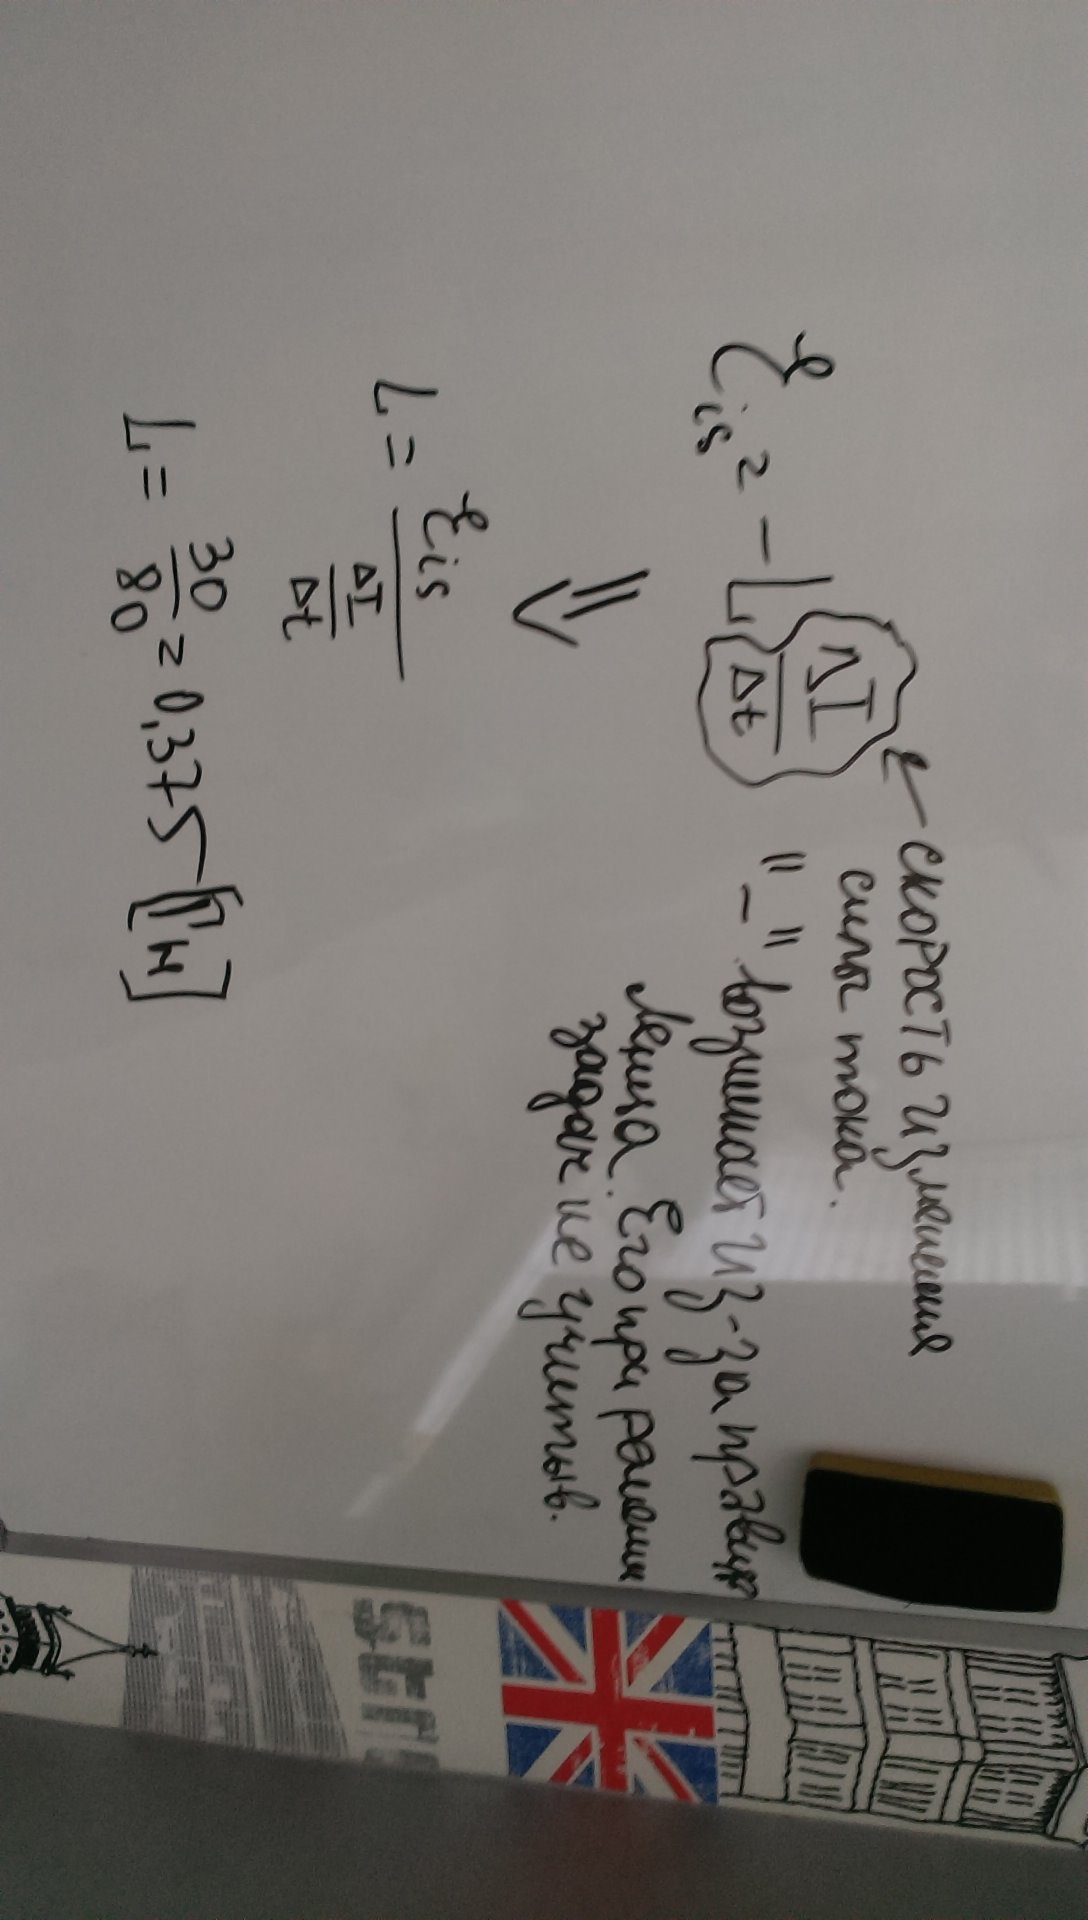 Ɛis = - L ΔI/Δt ← скорость изменения
силы тока.
"-" возникает из-за правила
Ленца. Его при решении
задач не учитыв.
⇓
L = Ɛis / (ΔI/Δt)
L = 30/80 = 0,375 [Гн]